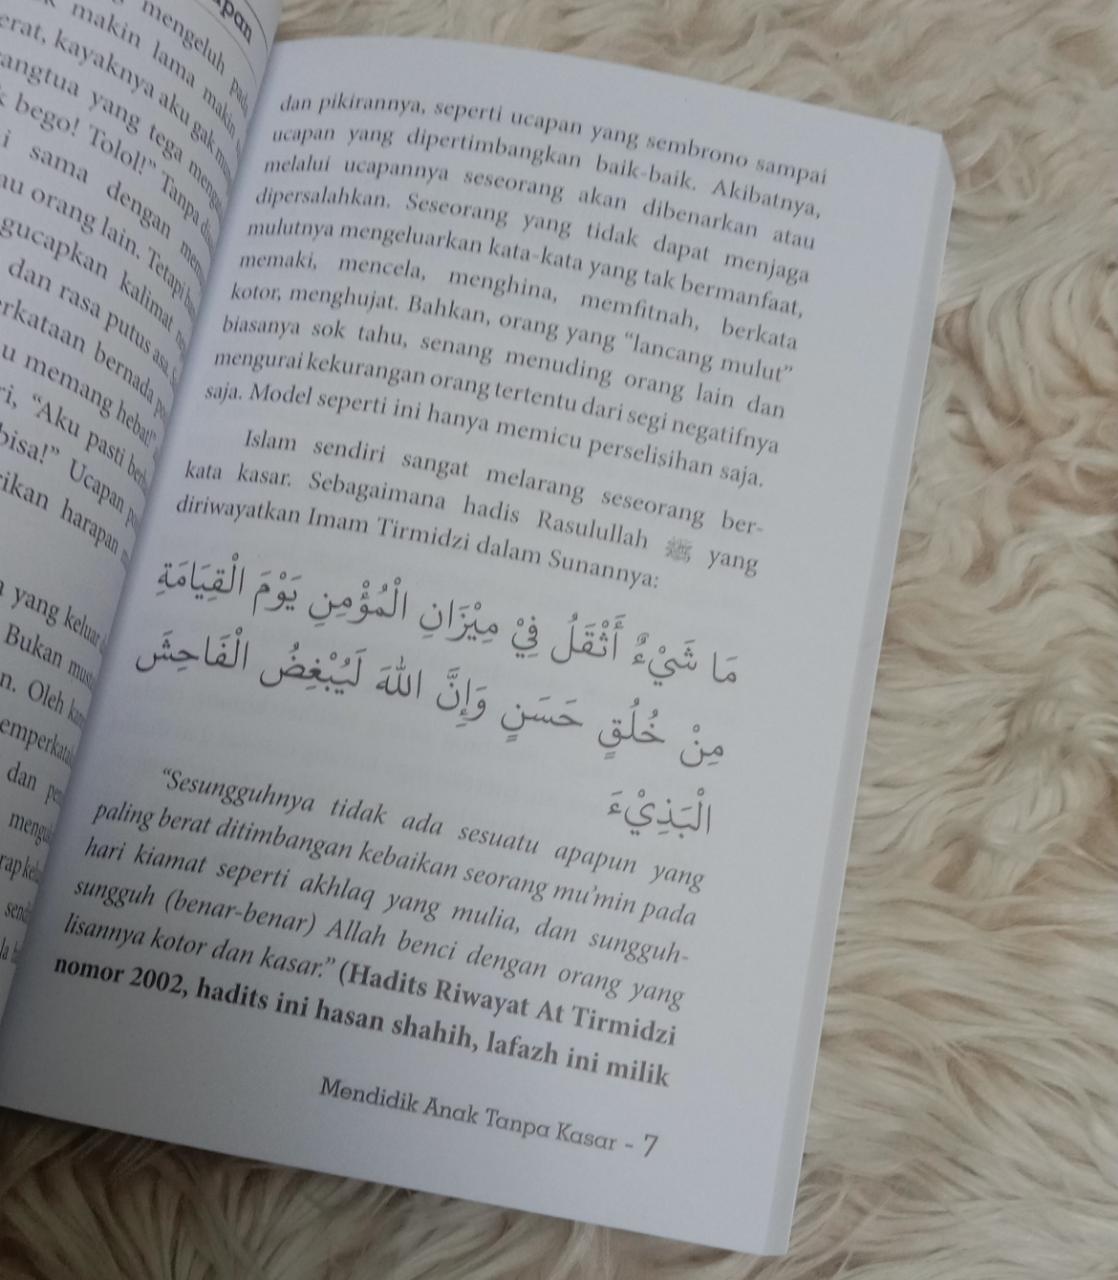 apan
mengeluh pada
makin lama makin
erat, kayaknya aku gak
angtua yang tega
bego! Tolol!" Tanpa
i sama dengan
au orang lain. Tetapi
gucapkan kalimat
dan rasa putus asa.
rkataan bernada
u memang hebat!"
ri, "Aku pasti
bisa!" Ucapan
rikan harapan
yang keluar
Bukan
n. Oleh
dan
dan pikirannya, seperti ucapan yang sembrono sampai
ucapan yang dipertimbangkan baik-baik. Akibatnya,
melalui ucapannya seseorang akan dibenarkan atau
dipersalahkan. Seseorang yang tidak dapat menjaga
mulutnya mengeluarkan kata-kata yang tak bermanfaat,
memaki, mencela, menghina, memfitnah, berkata
kotor, menghujat. Bahkan, orang yang "lancang mulut"
biasanya sok tahu, senang menuding orang lain dan
mengurai kekurangan orang tertentu dari segi negatifnya
saja. Model seperti ini hanya memicu perselisihan saja.
Islam sendiri sangat melarang seseorang ber-
kata kasar. Sebagaimana hadis Rasulullah ﷺ yang
diriwayatkan Imam Tirmidzi dalam Sunannya:
مَا شَيْءٌ أَثْقَلُ فِيْ مِيْزَانِ الْمُؤْمِنِ يَوْمَ الْقِيَامَةِ
مِنْ خُلُقٍ حَسَنٍ وَإِنَّ اللهَ لَيُبْغِضُ الْفَاحِشَ
الْبَذِيْءَ
"Sesungguhnya tidak ada sesuatu apapun yang
paling berat ditimbangan kebaikan seorang mu'min pada
hari kiamat seperti akhlaq yang mulia, dan sungguh-
sungguh (benar-benar) Allah benci dengan orang yang
lisannya kotor dan kasar." (Hadits Riwayat At Tirmidzi
nomor 2002, hadits ini hasan shahih, lafazh ini milik
Mendidik Anak Tanpa Kasar - 7